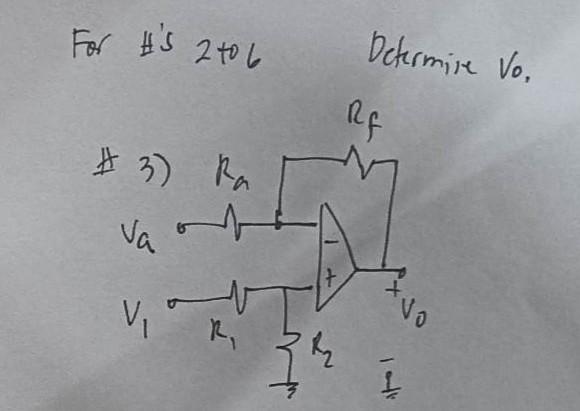 For #'s 2 to 6 Determine Vo.
Rf
# 3) Ra
Va
−
+
+
V1 Vo
R1 R2
−